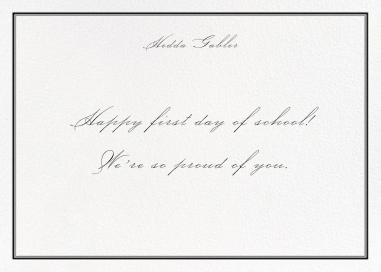 Hedda Gabler
Happy first day of school!
We're so proud of you.